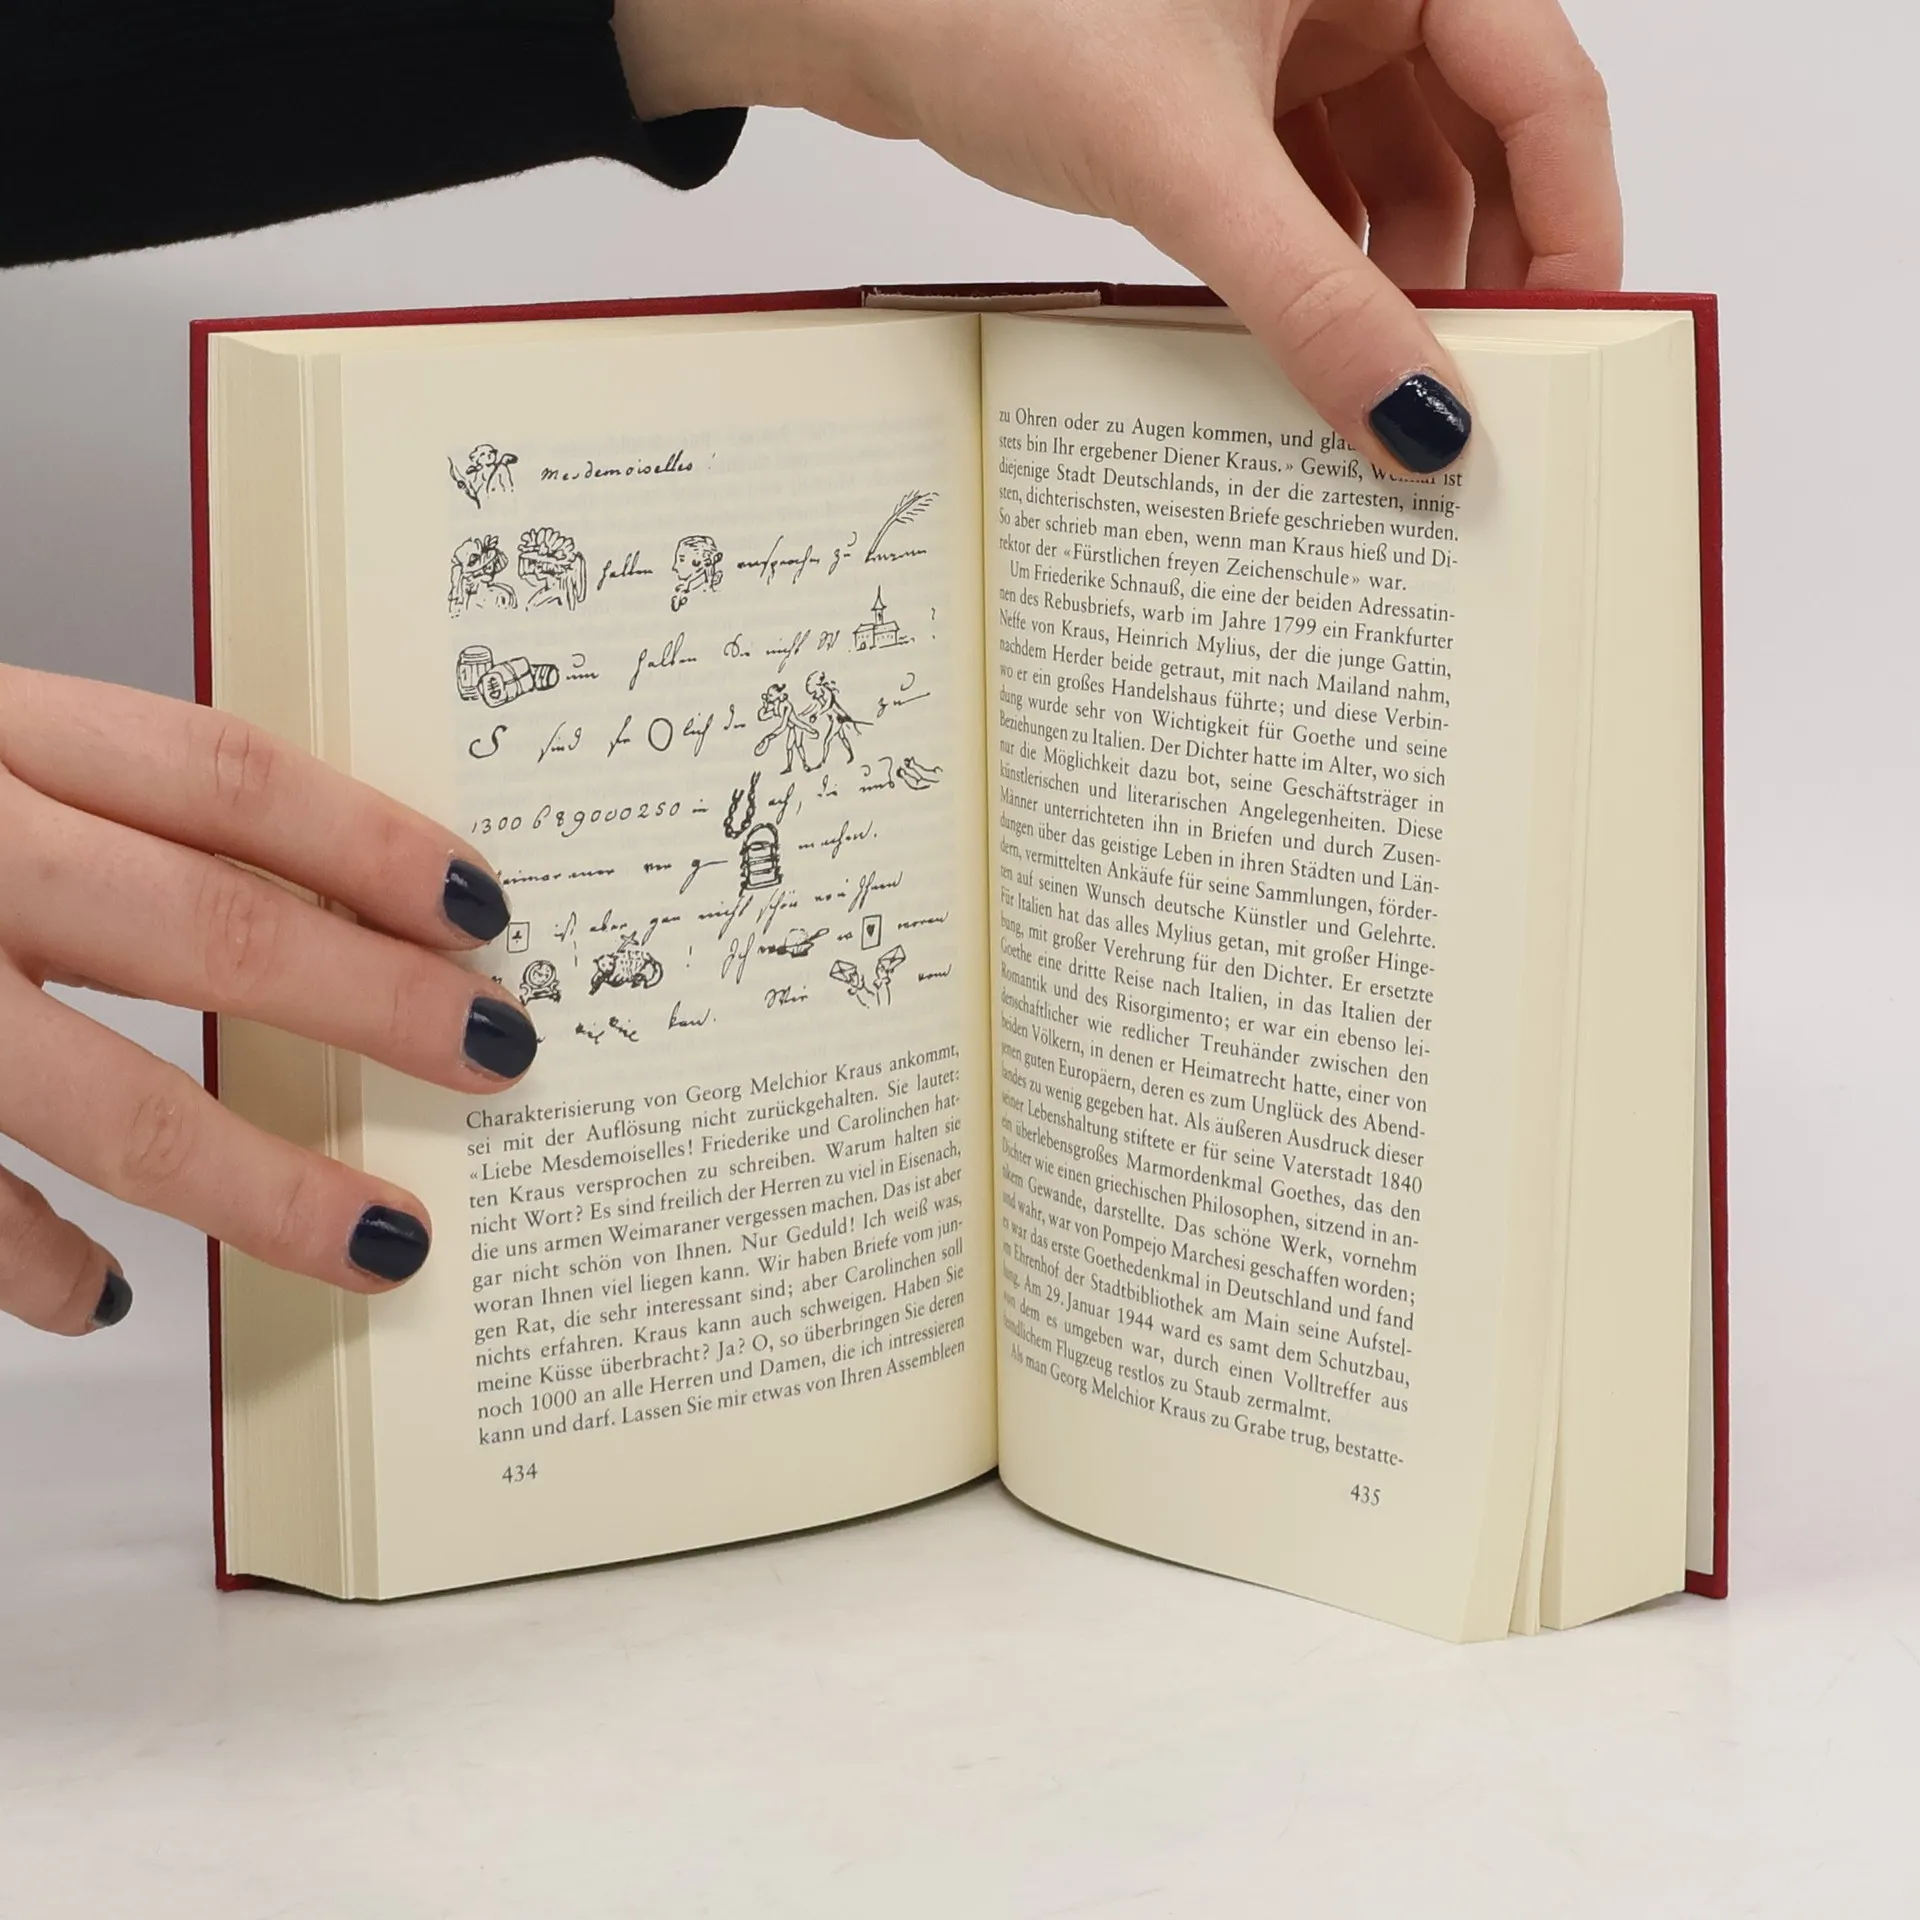 Mesdemoiselles!
halten versprochen zu
um halten Sie nicht W ?
S sind fr O lich der zu
1300689000250 in ach, die uns
machen.
ist aber gar nicht schön von Ihnen
! Ich woran
kan. Wir vom
Charakterisierung von Georg Melchior Kraus ankommt,
sei mit der Auflösung nicht zurückgehalten. Sie lautet:
«Liebe Mesdemoiselles! Friederike und Carolinchen hat-
ten Kraus versprochen zu schreiben. Warum halten sie
nicht Wort? Es sind freilich der Herren zu viel in Eisenach,
die uns armen Weimaraner vergessen machen. Das ist aber
gar nicht schön von Ihnen. Nur Geduld! Ich weiß was,
woran Ihnen viel liegen kann. Wir haben Briefe vom jun-
gen Rat, die sehr interessant sind; aber Carolinchen soll
nichts erfahren. Kraus kann auch schweigen. Haben Sie
meine Küsse überbracht? Ja? O, so überbringen Sie deren
noch 1000 an alle Herren und Damen, die ich intressieren
kann und darf. Lassen Sie mir etwas von Ihren Assembleen
434
zu Ohren oder zu Augen kommen, und
stets bin Ihr ergebener Diener Kraus.» Gewiß, ist
diejenige Stadt Deutschlands, in der die zartesten, innig-
sten, dichterischsten, weisesten Briefe geschrieben wurden.
So aber schrieb man eben, wenn man Kraus hieß und Di-
rektor der «Fürstlichen freyen Zeichenschule» war.
Um Friederike Schnauß, die eine der beiden Adressatin-
nen des Rebusbriefs, warb im Jahre 1799 ein Frankfurter
Neffe von Kraus, Heinrich Mylius, der die junge Gattin,
nachdem Herder beide getraut, mit nach Mailand nahm,
wo er ein großes Handelshaus führte; und diese Verbin-
dung wurde sehr von Wichtigkeit für Goethe und seine
Beziehungen zu Italien. Der Dichter hatte im Alter, wo sich
nur die Möglichkeit dazu bot, seine Geschäftsträger in
künstlerischen und literarischen Angelegenheiten. Diese
Männer unterrichteten ihn in Briefen und durch Zusen-
dungen über das geistige Leben in ihren Städten und Län-
dern, vermittelten Ankäufe für seine Sammlungen, förder-
ten auf seinen Wunsch deutsche Künstler und Gelehrte.
Für Italien hat das alles Mylius getan, mit großer Hinge-
bung, mit großer Verehrung für den Dichter. Er ersetzte
Goethe eine dritte Reise nach Italien, in das Italien der
Romantik und des Risorgimento; er war ein ebenso lei-
denschaftlicher wie redlicher Treuhänder zwischen den
beiden Völkern, in denen er Heimatrecht hatte, einer von
jenen guten Europäern, deren es zum Unglück des Abend-
landes zu wenig gegeben hat. Als äußeren Ausdruck dieser
seiner Lebenshaltung stiftete er für seine Vaterstadt 1840
ein überlebensgroßes Marmordenkmal Goethes, das den
Dichter wie einen griechischen Philosophen, sitzend in an-
tikem Gewande, darstellte. Das schöne Werk, vornehm
und wahr, war von Pompejo Marchesi geschaffen worden;
es war das erste Goethedenkmal in Deutschland und fand
im Ehrenhof der Stadtbibliothek am Main seine Aufstel-
lung. Am 29. Januar 1944 ward es samt dem Schutzbau,
von dem es umgeben war, durch einen Volltreffer aus
feindlichem Flugzeug restlos zu Staub zermalmt.
Als man Georg Melchior Kraus zu Grabe trug, bestatte-
435